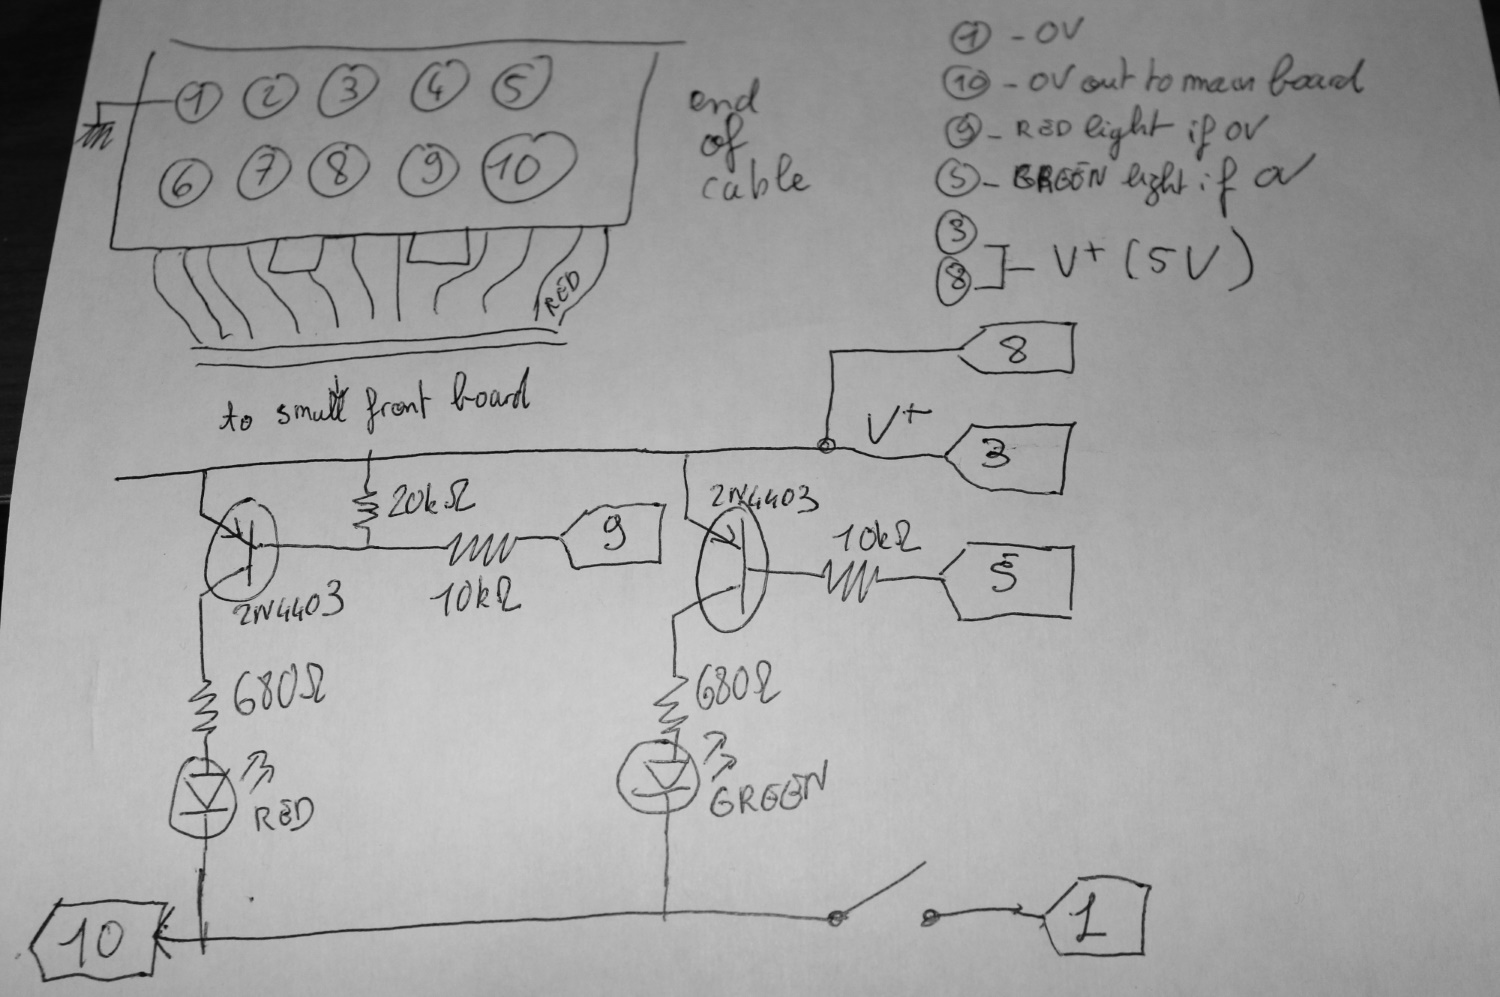 1 2 3 4 5
6 7 8 9 10
end
of
cable
RED
to small front board
1 - 0V
10 - 0V out to main board
9 - RED light if 0V
5 - GREEN light if 0V
3
8 - V+ (5V)
8
V+
3
20kΩ
9
10kΩ
2N4403
2N4403
10kΩ
5
680Ω
RED
680Ω
GREEN
10
1